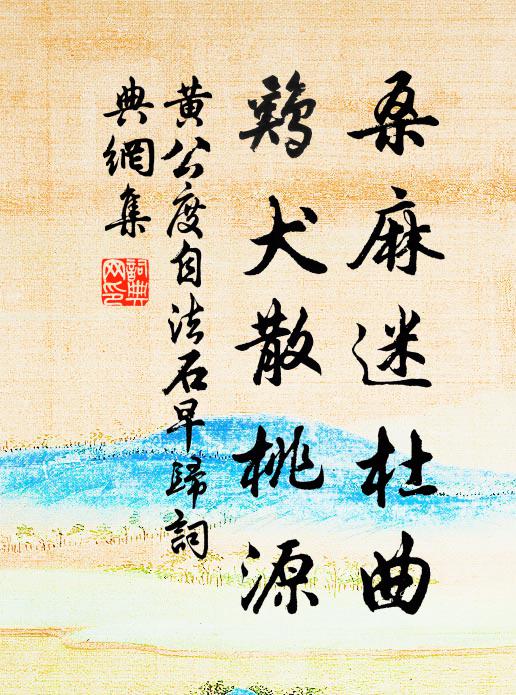 桑麻迷杜曲
鷄犬散桃源
黄公度自法石早歸詞
典網集
詞典
网印